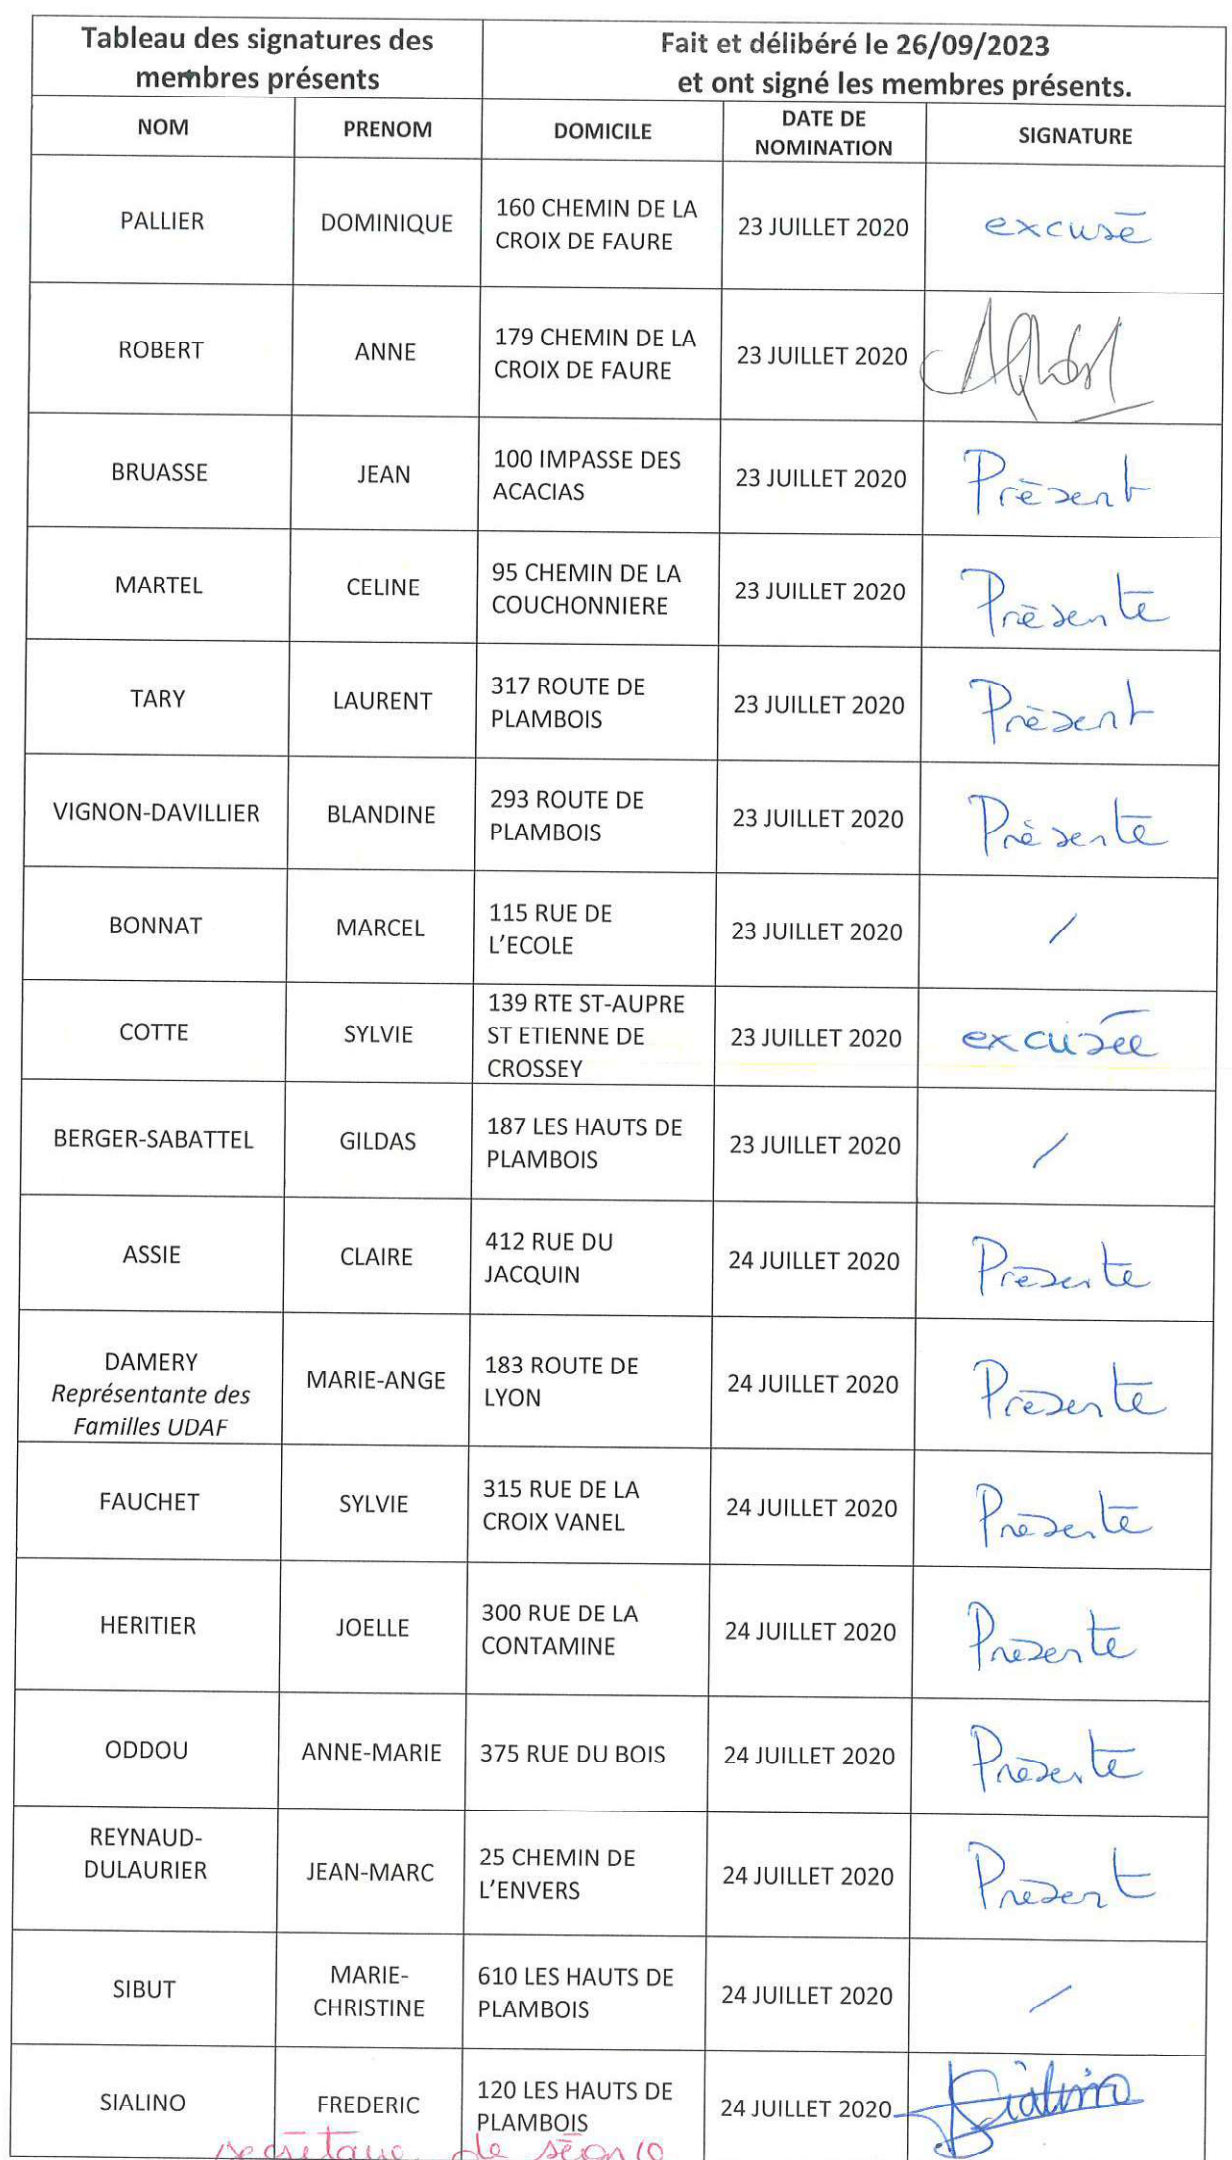 Tableau des signatures des
membres présents
Fait et délibéré le 26/09/2023
et ont signé les membres présents.
NOM
PRENOM
DOMICILE
DATE DE
NOMINATION
SIGNATURE
PALLIER
DOMINIQUE
160 CHEMIN DE LA
CROIX DE FAURE
23 JUILLET 2020
excusé
ROBERT
ANNE
179 CHEMIN DE LA
CROIX DE FAURE
23 JUILLET 2020
BRUASSE
JEAN
100 IMPASSE DES
ACACIAS
23 JUILLET 2020
Présent
MARTEL
CELINE
95 CHEMIN DE LA
COUCHONNIERE
23 JUILLET 2020
Présente
TARY
LAURENT
317 ROUTE DE
PLAMBOIS
23 JUILLET 2020
Présent
VIGNON-DAVILLIER
BLANDINE
293 ROUTE DE
PLAMBOIS
23 JUILLET 2020
Présente
BONNAT
MARCEL
115 RUE DE
L'ECOLE
23 JUILLET 2020
/
COTTE
SYLVIE
139 RTE ST-AUPRE
ST ETIENNE DE
CROSSEY
23 JUILLET 2020
excusée
BERGER-SABATTEL
GILDAS
187 LES HAUTS DE
PLAMBOIS
23 JUILLET 2020
/
ASSIE
CLAIRE
412 RUE DU
JACQUIN
24 JUILLET 2020
Présente
DAMERY
Représentante des
Familles UDAF
MARIE-ANGE
183 ROUTE DE
LYON
24 JUILLET 2020
Présente
FAUCHET
SYLVIE
315 RUE DE LA
CROIX VANEL
24 JUILLET 2020
Présente
HERITIER
JOELLE
300 RUE DE LA
CONTAMINE
24 JUILLET 2020
Présente
ODDOU
ANNE-MARIE
375 RUE DU BOIS
24 JUILLET 2020
Présente
REYNAUD-
DULAURIER
JEAN-MARC
25 CHEMIN DE
L'ENVERS
24 JUILLET 2020
Présent
SIBUT
MARIE-
CHRISTINE
610 LES HAUTS DE
PLAMBOIS
24 JUILLET 2020
/
SIALINO
FREDERIC
120 LES HAUTS DE
PLAMBOIS
24 JUILLET 2020
Sialino
secrétaire de séance